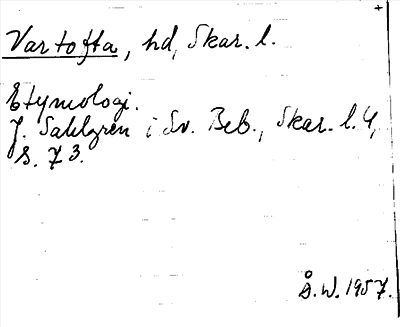 Vartofta, hd, Skar. l.
Etymologi.
J. Sahlgren i Sv. Beb., Skar. l. 4,
s. 73.
Å. W. 1957.